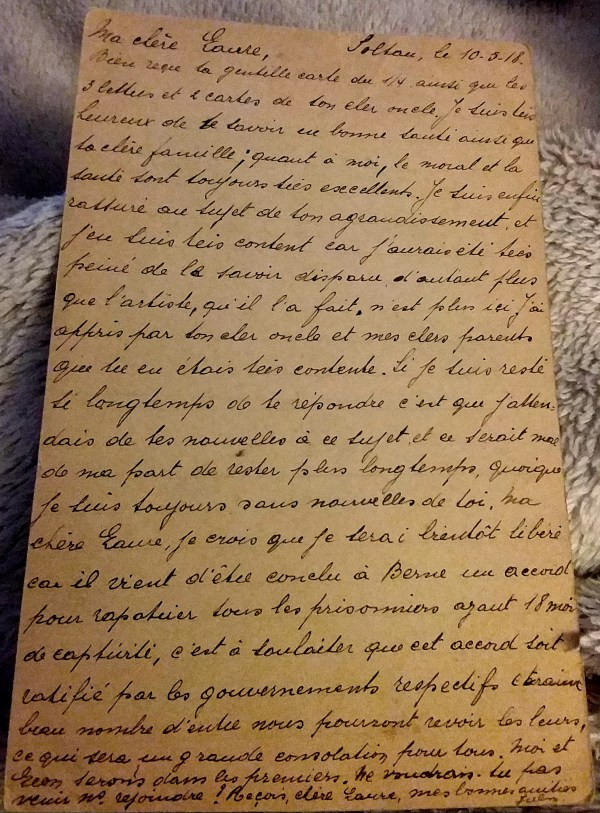 Ma chère Laure, Soltau, le 10-5-18.
Bien reçu ta gentille carte du 1/4 ainsi que les
3 lettres et 2 cartes de ton cher oncle. Je suis très
heureux de te savoir en bonne santé ainsi que
ta chère famille; quant à moi, le moral et la
santé sont toujours très excellents. Je suis enfin
rassuré au sujet de ton agrandissement, et
j'en suis très content car j'aurais été très
peiné de le savoir disparu, d'autant plus
que l'artiste, qu'il l'a fait, n'est plus ici. J'ai
appris par ton cher oncle et mes chers parents
que tu en étais très contente. Si je suis resté
si longtemps de te répondre c'est que j'atten-
dais de tes nouvelles à ce sujet, et ce serait mal
de ma part de rester plus longtemps, quoique
je suis toujours sans nouvelles de toi. Ma
chère Laure, je crois que je serai bientôt libéré
car il vient d'être conclu à Berne un accord
pour rapatrier tous les prisonniers ayant 18 mois
de captivité, c'est à souhaiter que cet accord soit
ratifié par les gouvernements respectifs
beau nombre d'entre nous pourront revoir les leurs,
ce qui sera une grande consolation pour tous. Moi et
Léon serons dans les premiers. Ne voudrais-tu pas
venir ns rejoindre? Reçois, chère Laure, mes bonnes amitiés